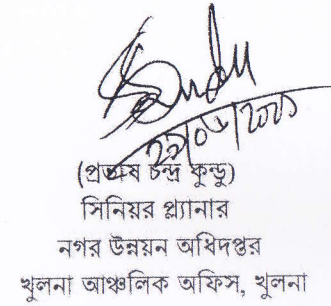 Kundu
(প্রত্যুষ চন্দ্র কুন্ডু)
সিনিয়র প্ল্যানার
নগর উন্নয়ন অধিদপ্তর
খুলনা আঞ্চলিক অফিস, খুলনা